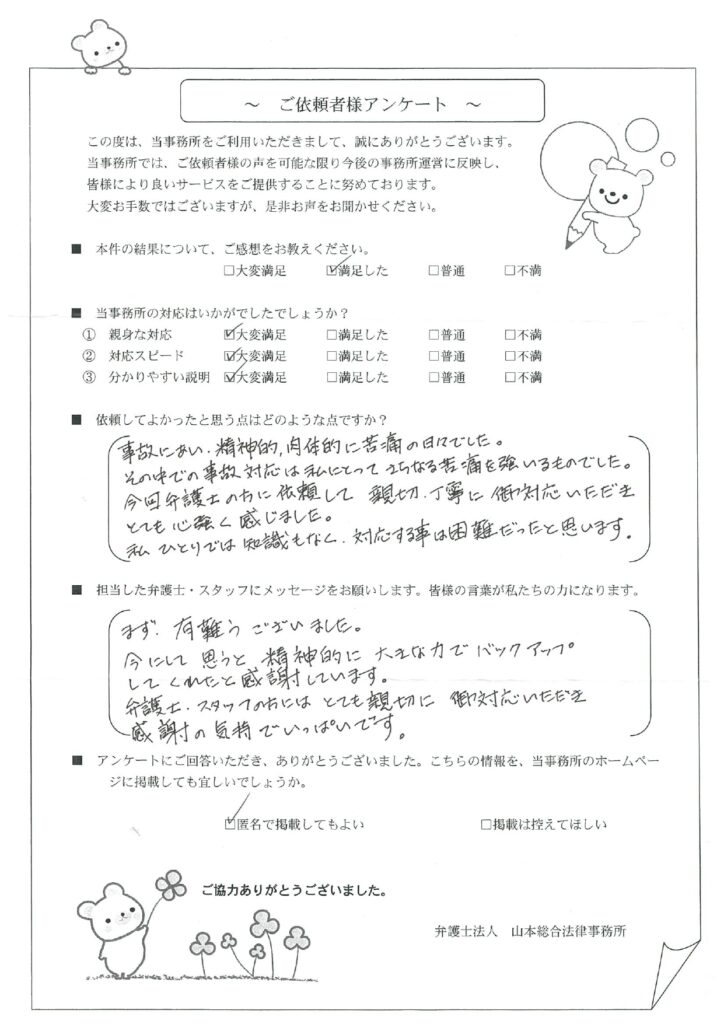 ～　ご依頼者様アンケート　～
この度は、当事務所をご利用いただきまして、誠にありがとうございます。
当事務所では、ご依頼者様の声を可能な限り今後の事務所運営に反映し、
皆様により良いサービスをご提供することに努めております。
大変お手数ではございますが、是非お声をお聞かせください。
■　本件の結果について、ご感想をお教えください。
□大変満足　☑満足した　□普通　□不満
■　当事務所の対応はいかがでしたでしょうか？
①　親身な対応　☑大変満足　□満足した　□普通　□不満
②　対応スピード　☑大変満足　□満足した　□普通　□不満
③　分かりやすい説明　☑大変満足　□満足した　□普通　□不満
■　依頼してよかったと思う点はどのような点ですか？
事故にあい、精神的,肉体的に苦痛の日々でした。
その中での事故対応は私にとってさらなる苦痛を強いるものでした。
今回弁護士の方に依頼して 親切、丁寧に 御対応いただき
とても心強く感じました。
私 ひとりでは知識もなく、対応する事は困難だったと思います。
■　担当した弁護士・スタッフにメッセージをお願いします。皆様の言葉が私たちの力になります。
まず、有難うございました。
今にして思うと 精神的に 大きな力で バックアップ
してくれたと感謝しています。
弁護士、スタッフの方には とても親切に 御対応いただき
感謝の気持でいっぱいです。
■　アンケートにご回答いただき、ありがとうございました。こちらの情報を、当事務所のホームペー
ジに掲載しても宜しいでしょうか。
☑匿名で掲載してもよい　□掲載は控えてほしい
ご協力ありがとうございました。
弁護士法人　山本総合法律事務所